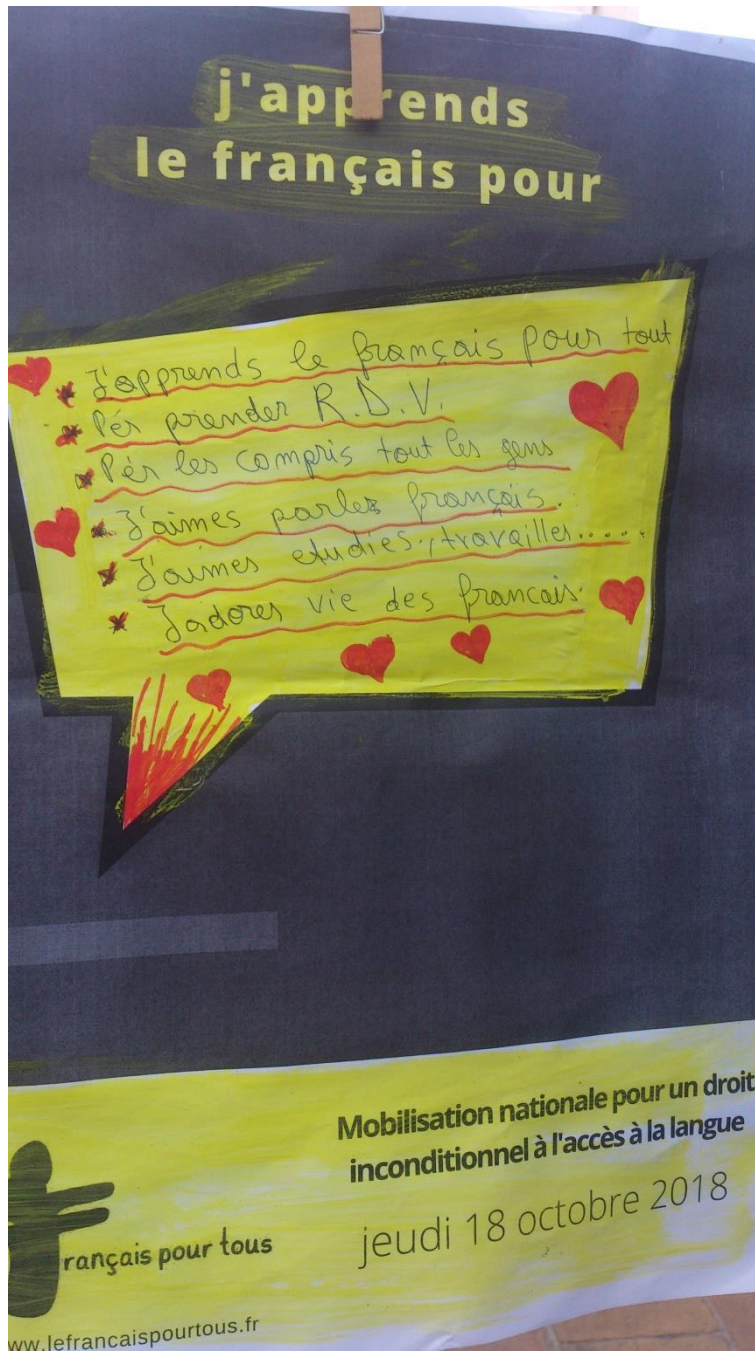 j'apprends
le français pour
J'apprends le français pour tout
Pér prender R.D.V.
Pér les compris tout les gens
J'aimes parlez français.
J'aimes etudies, travailles.....
J'adores vie des francais.
Mobilisation nationale pour un droit
inconditionnel à l'accès à la langue
jeudi 18 octobre 2018
rançais pour tous
ww.lefrancaispourtous.fr